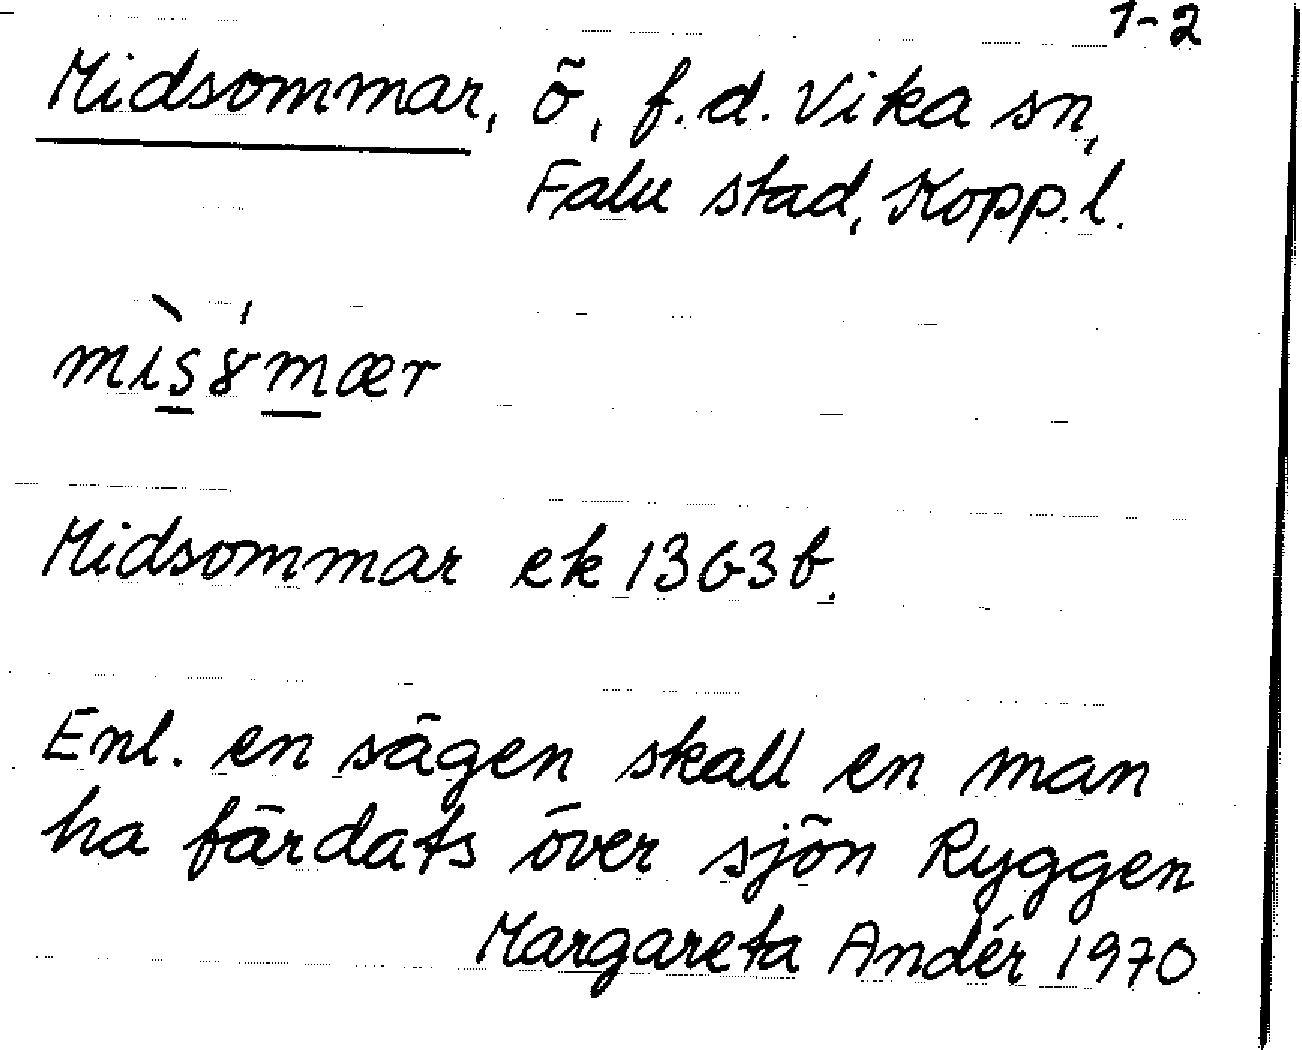 1-2
Midsommar, ö, f.d. Vika sn,
Falu stad, Kopp.l.
mı̀s̲ȣ̍m̲ær
Midsommar ek 1363 b.
Enl. en sägen skall en man
ha färdats över sjön Ryggen
Margareta Andér 1970